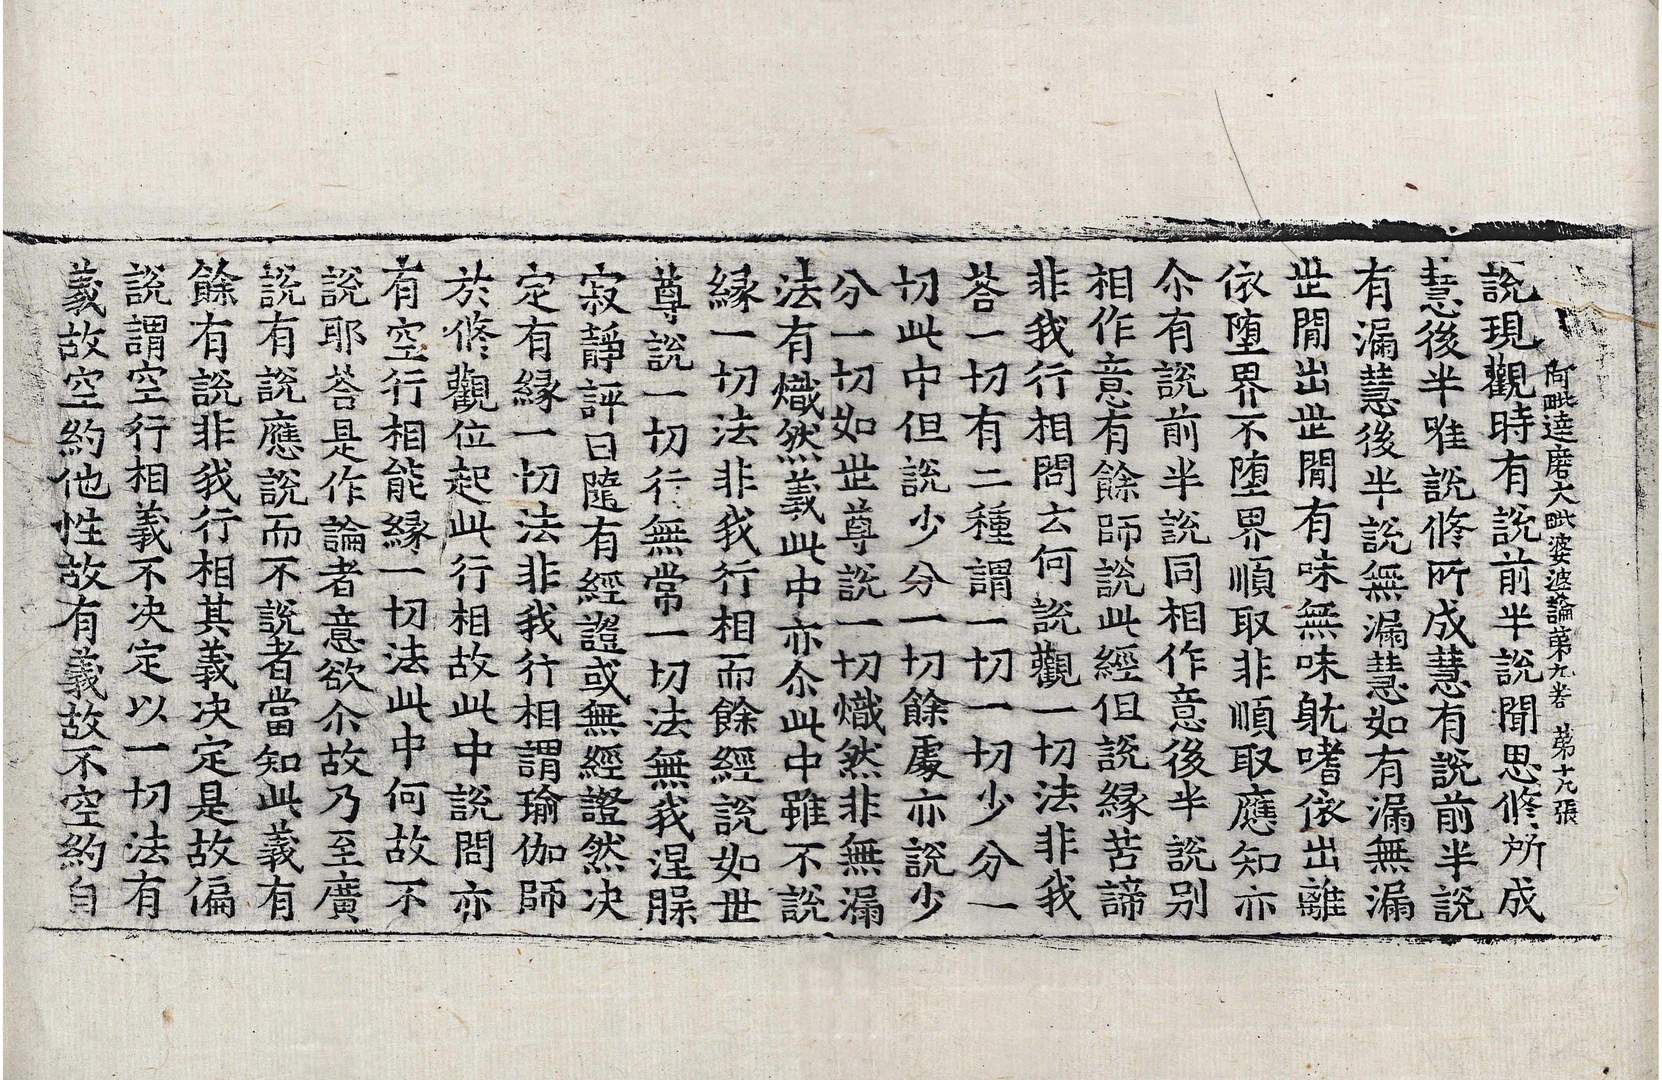 阿毗達磨大毗婆沙論第九卷 第十九張
說現觀時有說前半說聞思修所成
慧後半唯說修所成慧有說前半說
有漏慧後半說無漏慧如有漏無漏
世閒出世閒有味無味躭嗜依出離
依墮界不墮界順取非順取應知亦
尒有說前半說同相作意後半說别
相作意有餘師說此經但說緣苦諦
非我行相問云何說觀一切法非我
荅一切有二種謂一切一切少分一
切此中但說少分一切餘處亦說少
分一切如世尊說一切熾然非無漏
法有熾然義此中亦尒此中雖不說
緣一切法非我行相而餘經說如世
尊說一切行無常一切法無我涅槃
寂靜評曰隨有經證或無經證然决
定有緣一切法非我行相謂瑜伽師
於修觀位起此行相故此中說問亦
有空行相能緣一切法此中何故不
說耶荅是作論者意欲尒故乃至廣
說有說應說而不說者當知此義有
餘有說非我行相其義决定是故偏
說謂空行相義不决定以一切法有
義故空約他性故有義故不空約自